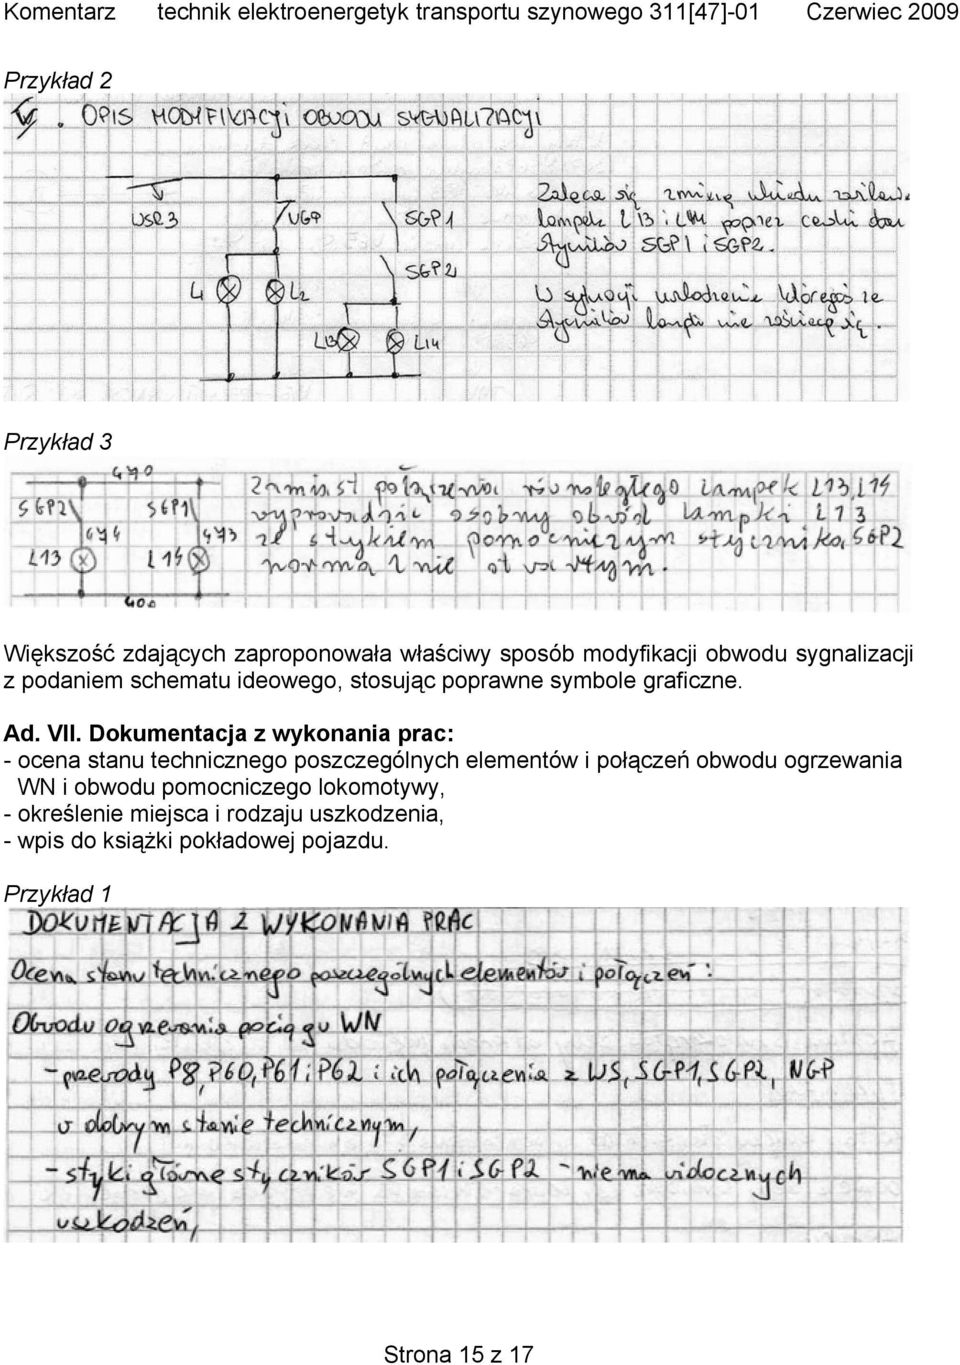 Komentarz technik elektroenergetyk transportu szynowego 311[47]-01 Czerwiec 2009
Przykład 2
V. OPIS MODYFIKACJI OBWODU SYGNALIZACJI
WSR3
UGP
SGP1
SGP2
L1
L2
L13
L14
Zaleca się zmianę układu zasilan.
lampek L13 i L14 poprzez cewki dwu
styczników SGP1 i SGP2.
W sytuacji uszkodzenie któregoś ze
styczników lampki nie zaświecą się.
Przykład 3
470
SGP2
SGP1
474
473
L13
L14
400
Zamiast połączenia równoległego lampek L13, L14
wyprowadzić osobny obwód lampki L13
ze stykiem pomocniczym stycznika SGP2
normalnie otwartym.
Większość zdających zaproponowała właściwy sposób modyfikacji obwodu sygnalizacji
z podaniem schematu ideowego, stosując poprawne symbole graficzne.
Ad. VII. Dokumentacja z wykonania prac:
- ocena stanu technicznego poszczególnych elementów i połączeń obwodu ogrzewania
WN i obwodu pomocniczego lokomotywy,
- określenie miejsca i rodzaju uszkodzenia,
- wpis do książki pokładowej pojazdu.
Przykład 1
DOKUMENTACJA Z WYKONANIA PRAC
Ocena stanu technicznego poszczególnych elementów i połączeń:
Obwodu ogrzewania pociągu WN
- przewody P8, P60, P61 i P62 i ich połączenia z WS, SGP1, SGP2, NGP
w dobrym stanie technicznym,
- styki główne styczników SGP1 i SGP2 - nie ma widocznych
uszkodzeń,
Strona 15 z 17